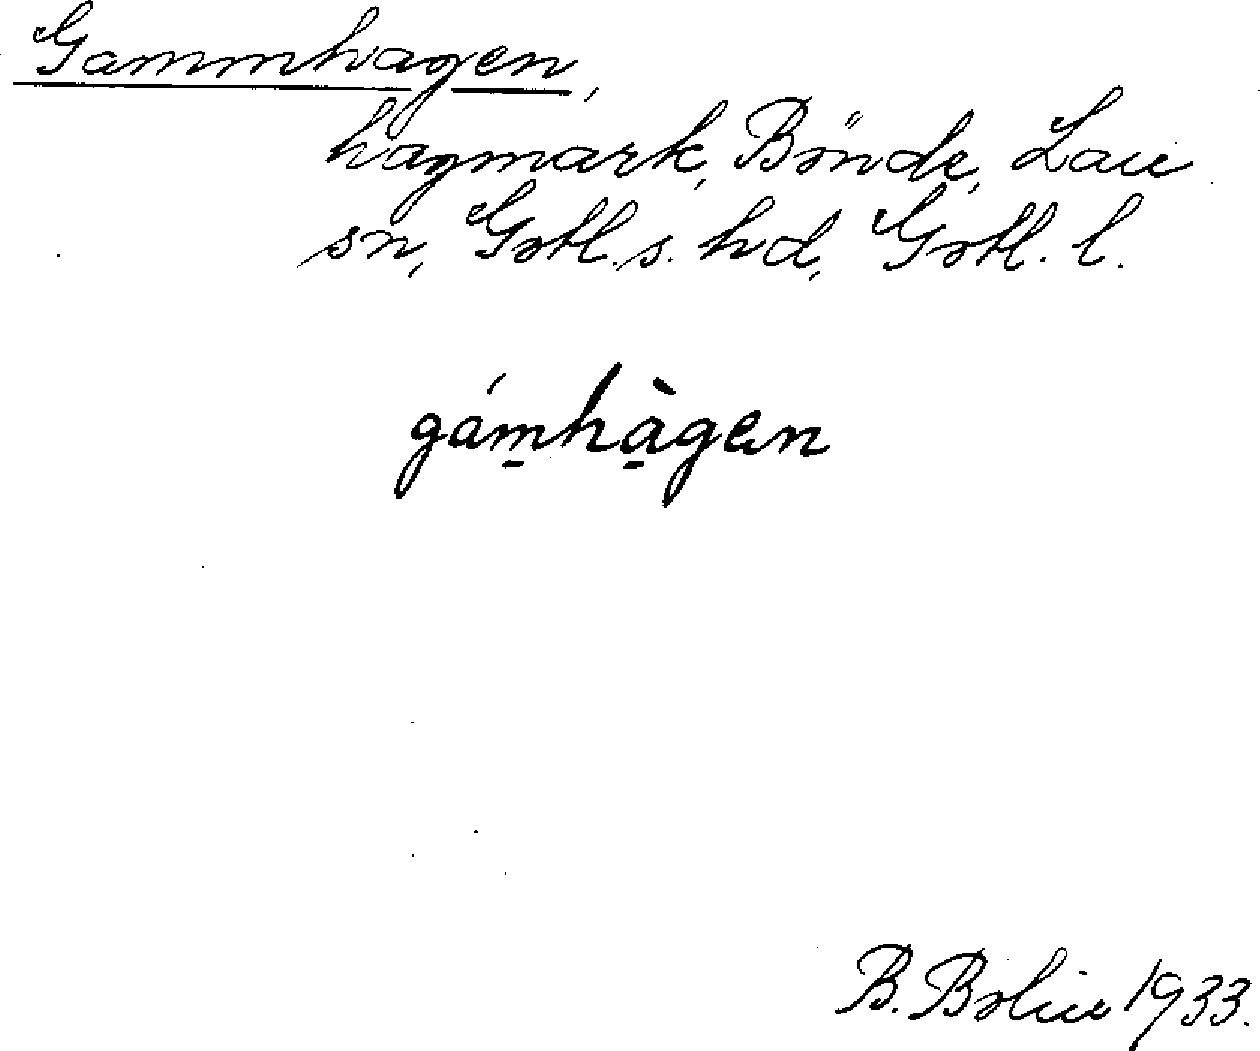 Gammhagen,
hagmark, Bönde, Lau
sn, Gotl. s. hd, Gotl. l.
gám̱hà̱gen
B. Bolin 1933.